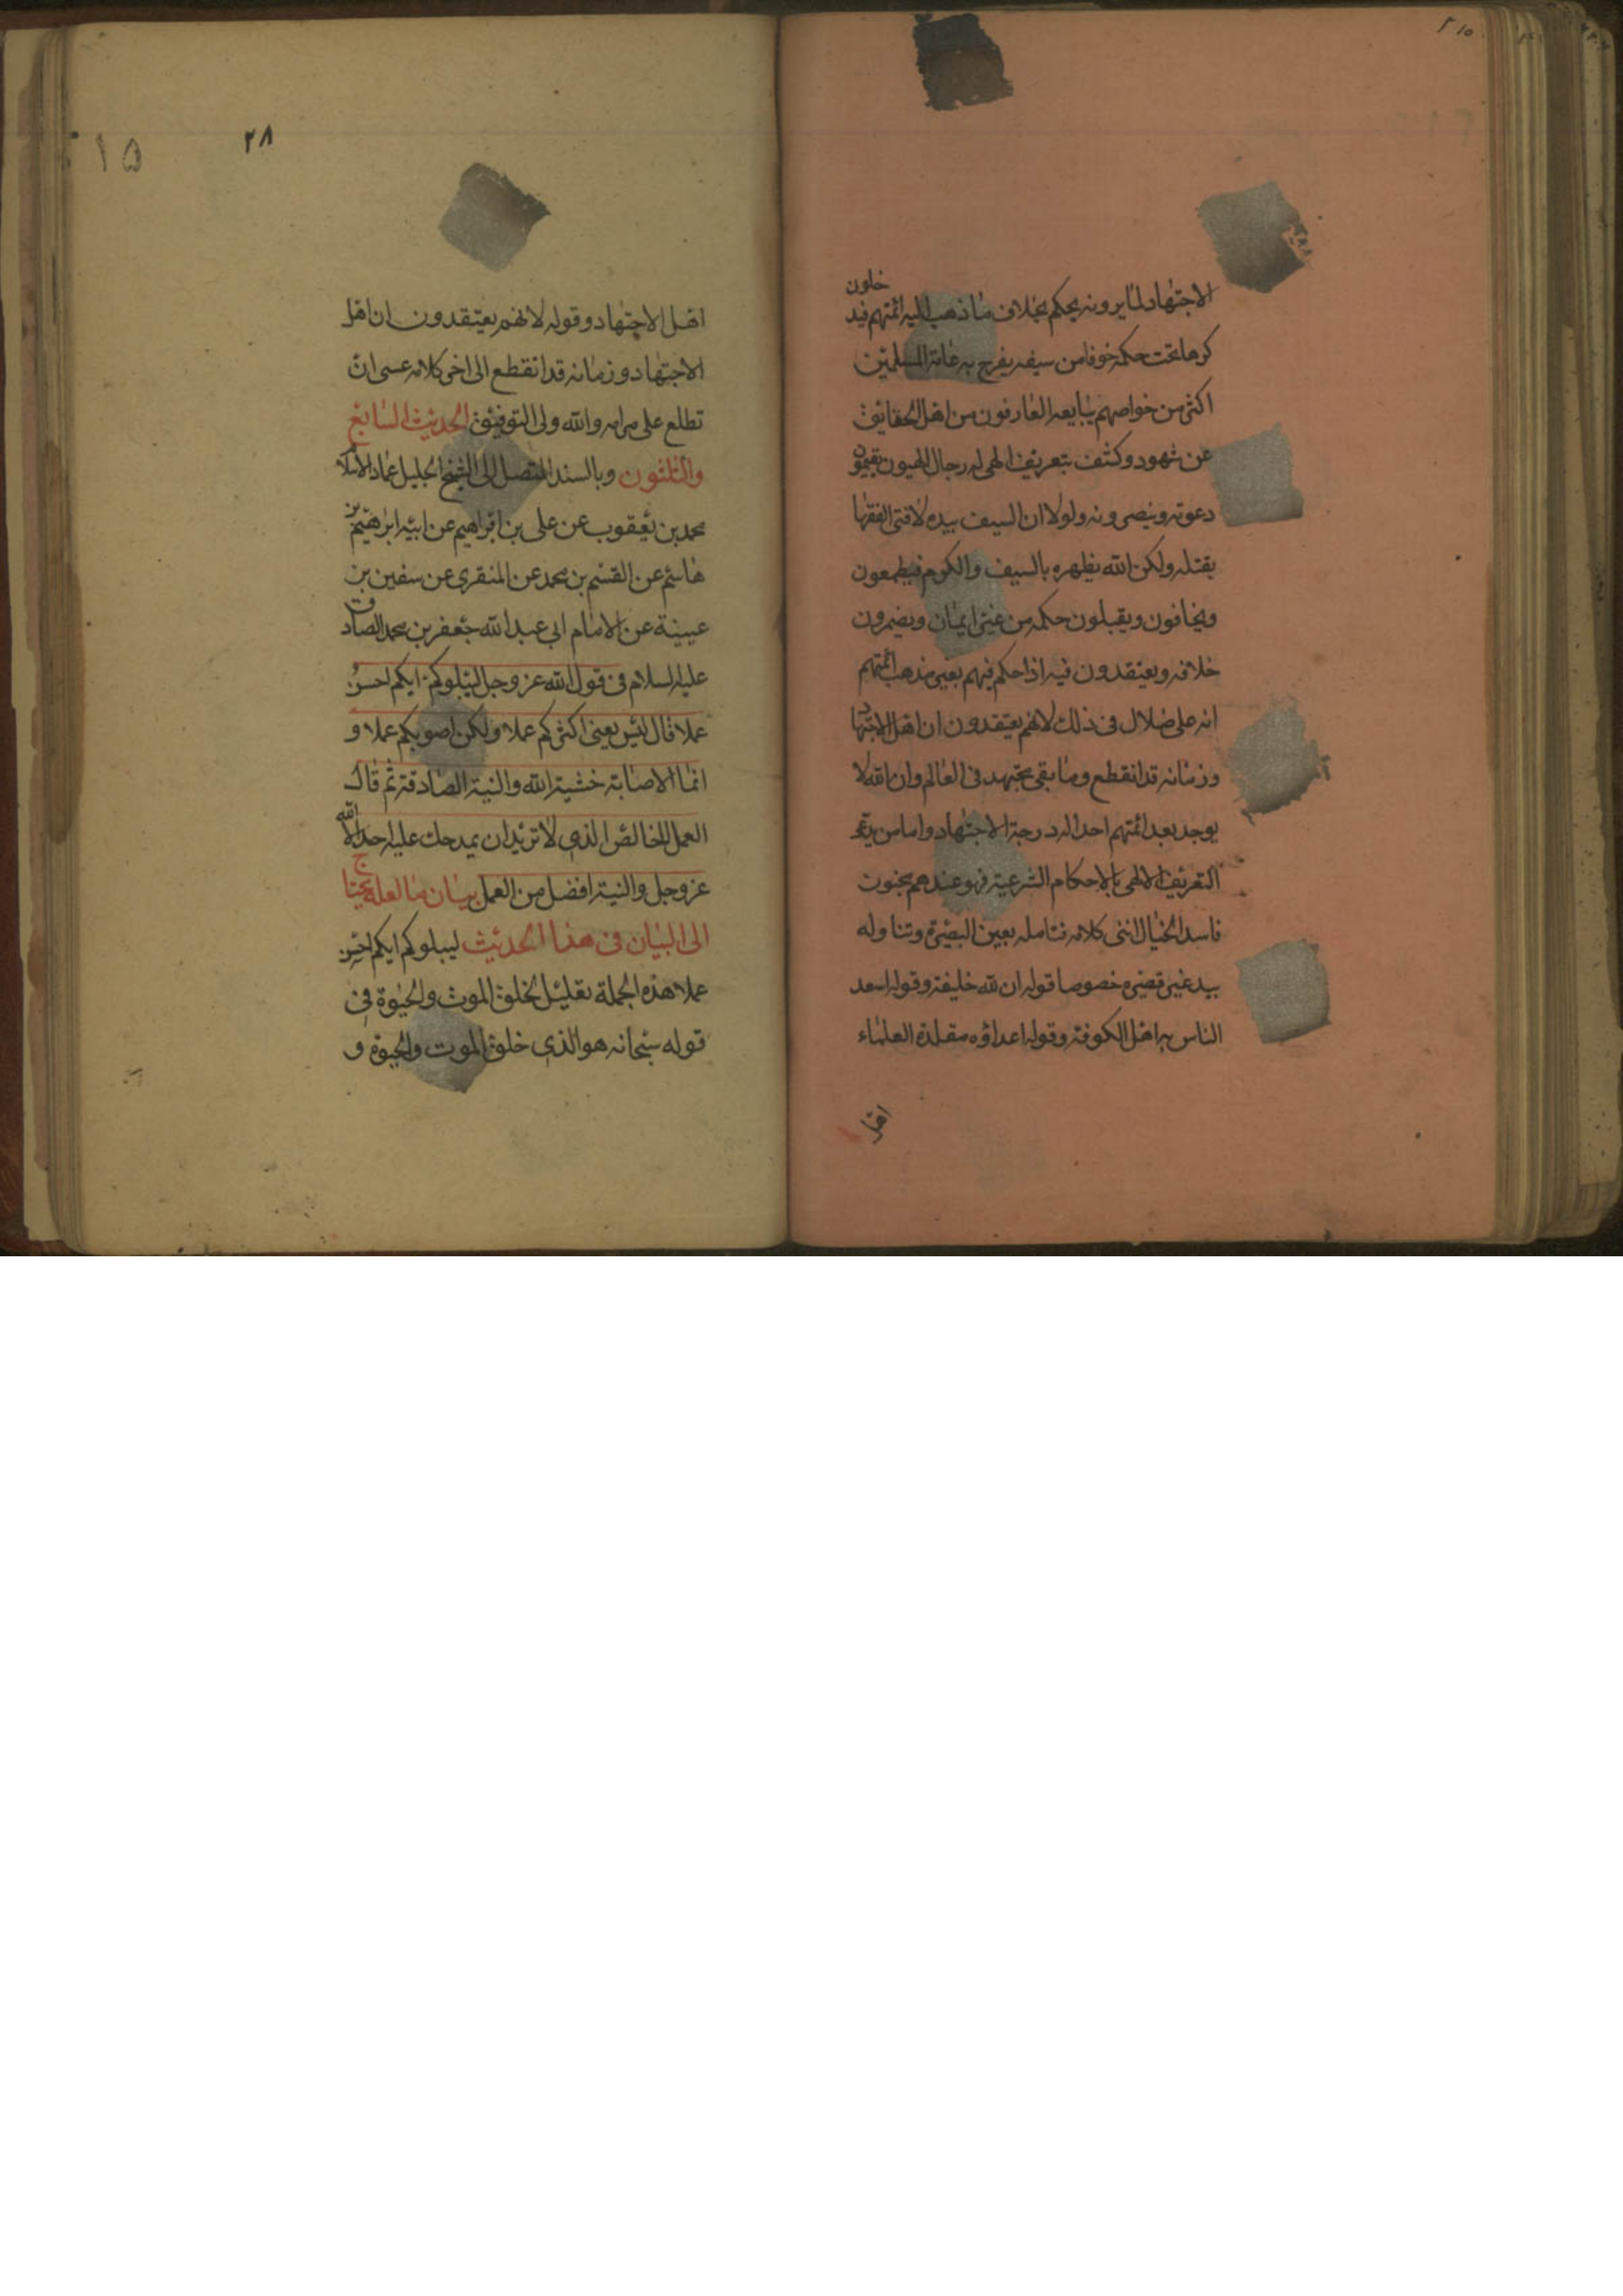 الاجتهاد لما يرونه يحكم بخلاف ما ذهب اليه ائمتهم فيدخلون
كرها تحت حكمه خوفا من سيفه يفرح به عامة المسلمين
اكثر من خواصهم يبايعه العارفون من اهل الحقايق
عن شهود وكشف بتعريف الهى له رجال الهيون يقيمون
دعوته وينصرونه ولولا ان السيف بيده لافتى الفقها
بقتله ولكن الله يظهره بالسيف والكرم فيطمعون
ويخافون ويقبلون حكمه من غير ايمان ويضمرون
خلافه ويعتقدون فيه اذا حكم فيهم بغير مذهب ائمتهم
انه على ضلال فى ذلك لانهم يعتقدون ان اهل الاجتهاد
وزمانه قد انقطع وما بقى مجتهد فى العالم وان الله لا
يوجد بعد ائمتهم احدا له درجة الاجتهاد واما من يدعى
التعريف الالهى بالاحكام الشرعية فهو عندهم مجنون
فاسد الخيال انتهى كلامه فتامله بعين البصيرة وتناوله
بيد غير قصيرة خصوصا قوله ان لله خليفة وقوله اسعد
الناس به اهل الكوفة وقوله اعداؤه مقلدة العلماء
اهل
٢١٥
٢٨
اهل الاجتهاد وقوله لانهم يعتقدون ان اهل
الاجتهاد وزمانه قد انقطع الى اخر كلامه عسى ان
تطلع على مرامه والله ولى التوفيق الحديث السابع
والثلثون وبالسند المتصل الى الشيخ الجليل عماد الاسلام
محمد بن يعقوب عن على بن ابراهيم عن ابيه ابرهيم بن
هاشم عن القسم بن محمد عن المنقرى عن سفين بن
عيينة عن الامام ابي عبد الله جعفر بن محمد الصادق
عليه السلام فى قول الله عز وجل ليبلوكم ايكم احسن
عملا قال ليس يعنى اكثركم عملا ولكن اصوبكم عملا و
انما الاصابة خشية الله والنية الصادقة ثم قال
العمل الخالص الذى لا تريد ان يمدحك عليه احد الا الله
عز وجل والنية افضل من العمل بيان ما لعله يحتاج
الى البيان فى هذا الحديث ليبلوكم ايكم احسن
عملا هذه الجملة تعليل لخلق الموت والحيوة فى
قوله سبحانه هو الذى خلق الموت والحيوة و